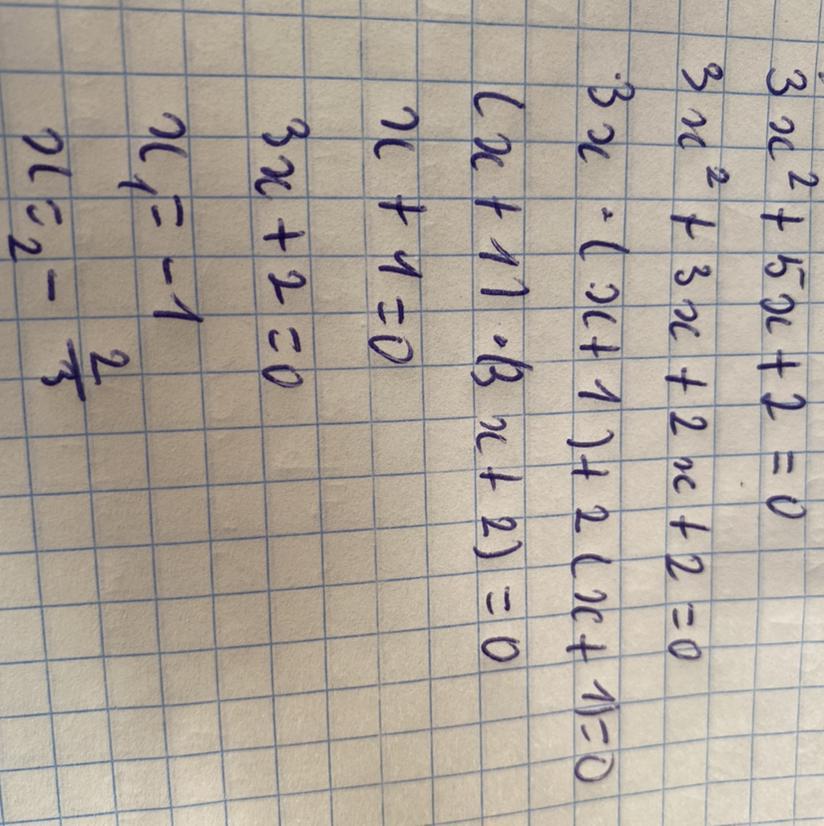 3x² + 5x + 2 = 0
3x² + 3x + 2x + 2 = 0
3x · (x + 1) + 2(x + 1) = 0
(x + 1) · (3x + 2) = 0
x + 1 = 0
3x + 2 = 0
x₁ = -1
x₂ = - 2/3